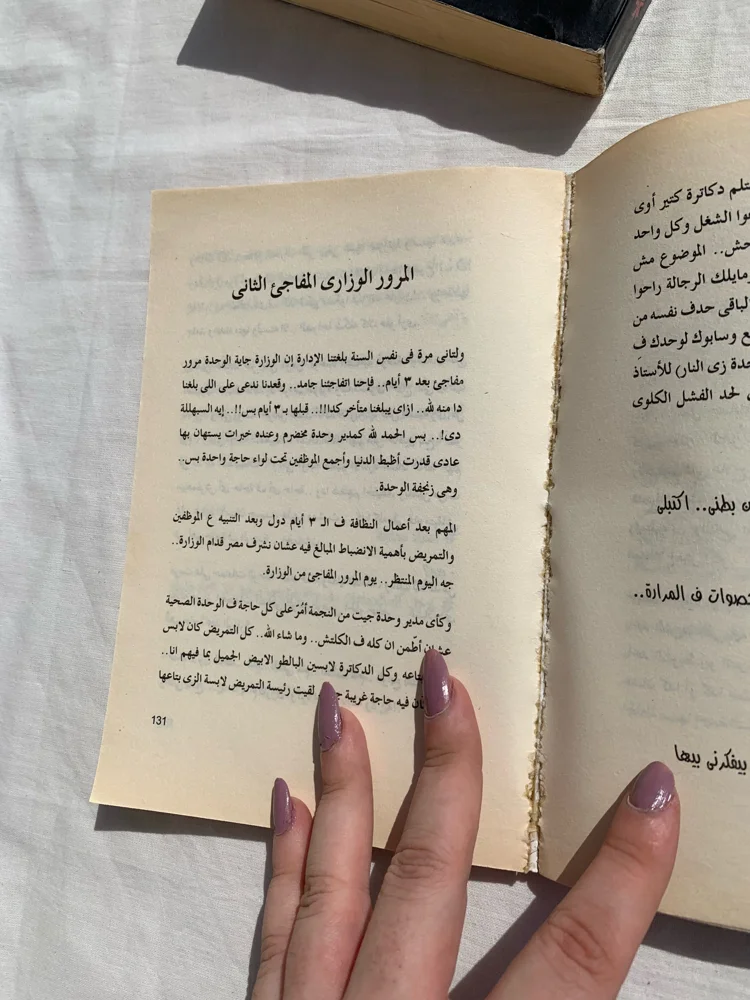 ستلم دكاترة كتير أوى
الشغل وكل واحد
الموضوع مش
الرجالة راحوا
لباقى حدف نفسه من
وسابوك لوحدك ف
زى النار) للأستاذ
لحد الفشل الكلوى
بطنى.. اكتبلى
ف المرارة..
بيفكرنى بيها
المرور الوزارى المفاجئ الثانى
ولتانى مرة فى نفس السنة بلغتنا الإدارة إن الوزارة جاية الوحدة مرور
مفاجئ بعد ٣ أيام.. فإحنا اتفاجئنا جامد.. وقعدنا ندعى على اللى بلغنا
دا منه لله.. ازاى يبلغنا متأخر كدا!!.. قبلها بـ ٣ أيام بس!!.. إيه السبهللة
دى!.. بس الحمد لله كمدير وحدة مخضرم وعنده خبرات يستهان بها
عادى قدرت أظبط الدنيا وأجمع الموظفين تحت لواء حاجة واحدة بس..
وهى زنجفة الوحدة.
المهم بعد أعمال النظافة ف الـ ٣ أيام دول وبعد التنبيه ع الموظفين
والتمريض بأهمية الانضباط المبالغ فيه عشان نشرف مصر قدام الوزارة..
جه اليوم المنتظر.. يوم المرور المفاجئ من الوزارة.
وكأى مدير وحدة جيت من النجمة أمُرّ على كل حاجة ف الوحدة الصحية
عشان أطّمن ان كله ف الكلتش.. وما شاء الله.. كل التمريض كان لابس
وكل الدكاترة لابسين البالطو الابيض الجميل بما فيهم انا..
فيه حاجة غريبة لقيت رئيسة التمريض لابسة الزى بتاعها
131